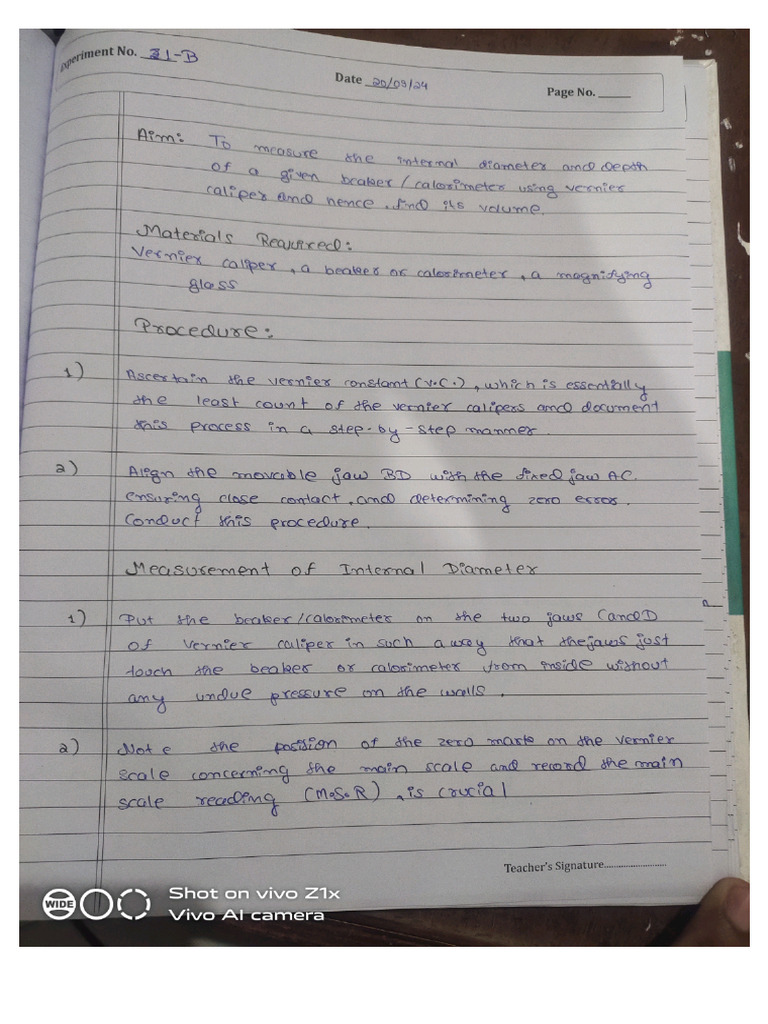 Experiment No. 31-B
Date 20/09/24
Page No.
Aim: To measure the internal diameter and depth
of a given beaker/calorimeter using vernier
caliper and hence find its volume.
Materials Required:
Vernier caliper, a beaker or calorimeter, a magnifying
glass
Procedure:
1) Ascertain the vernier constant (V.C.), which is essentially
the least count of the vernier calipers and document
this process in a step-by-step manner.
2) Align the movable jaw BD with the fixed jaw AC.
ensuring close contact, and determining zero error.
Conduct this procedure.
Measurement of Internal Diameter
1) Put the beaker/calorimeter on the two jaws C and D
of vernier caliper in such a way that the jaws just
touch the beaker or calorimeter from inside without
any undue pressure on the walls.
2) Note the position of the zero mark on the vernier
scale concerning the main scale and record the main
scale reading (M.S.R), is crucial
Teacher's Signature..........................
WIDE
Shot on vivo Z1x
Vivo AI camera